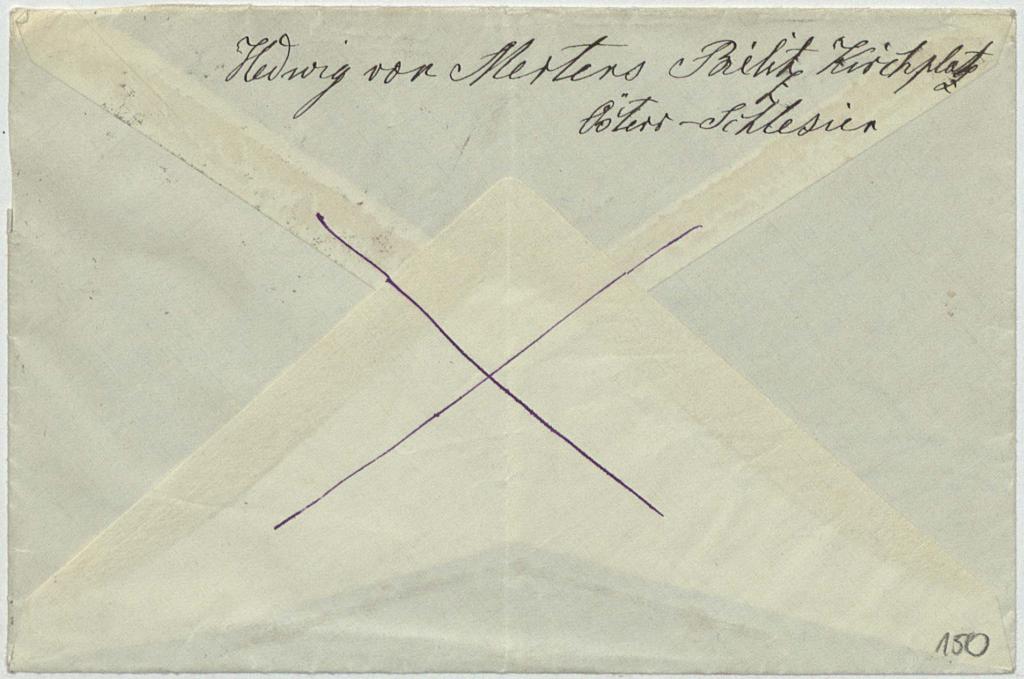 Hedwig von Mertens Bielitz Kirchplatz
Österr-Schlesien
150